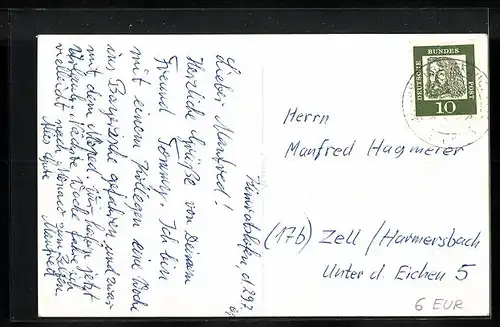 Lieber Manfred!
Herzliche Grüße von Deinem
Freund Tommy. Ich bin
mit einem Kollegen eine Woche
ins gefahren, und zwar
mit dem Moped. Wir haben jetzt
Urlaub. Nächste Woche fahre ich
vielleicht nach Monaco zum Zelten.
Alles Gute
Manfred
DEUTSCHE BUNDESPOST
10
Herrn
Manfred Hagmeier
(17b) Zell / Harmersbach
Unter d. Eichen 5
6 EUR